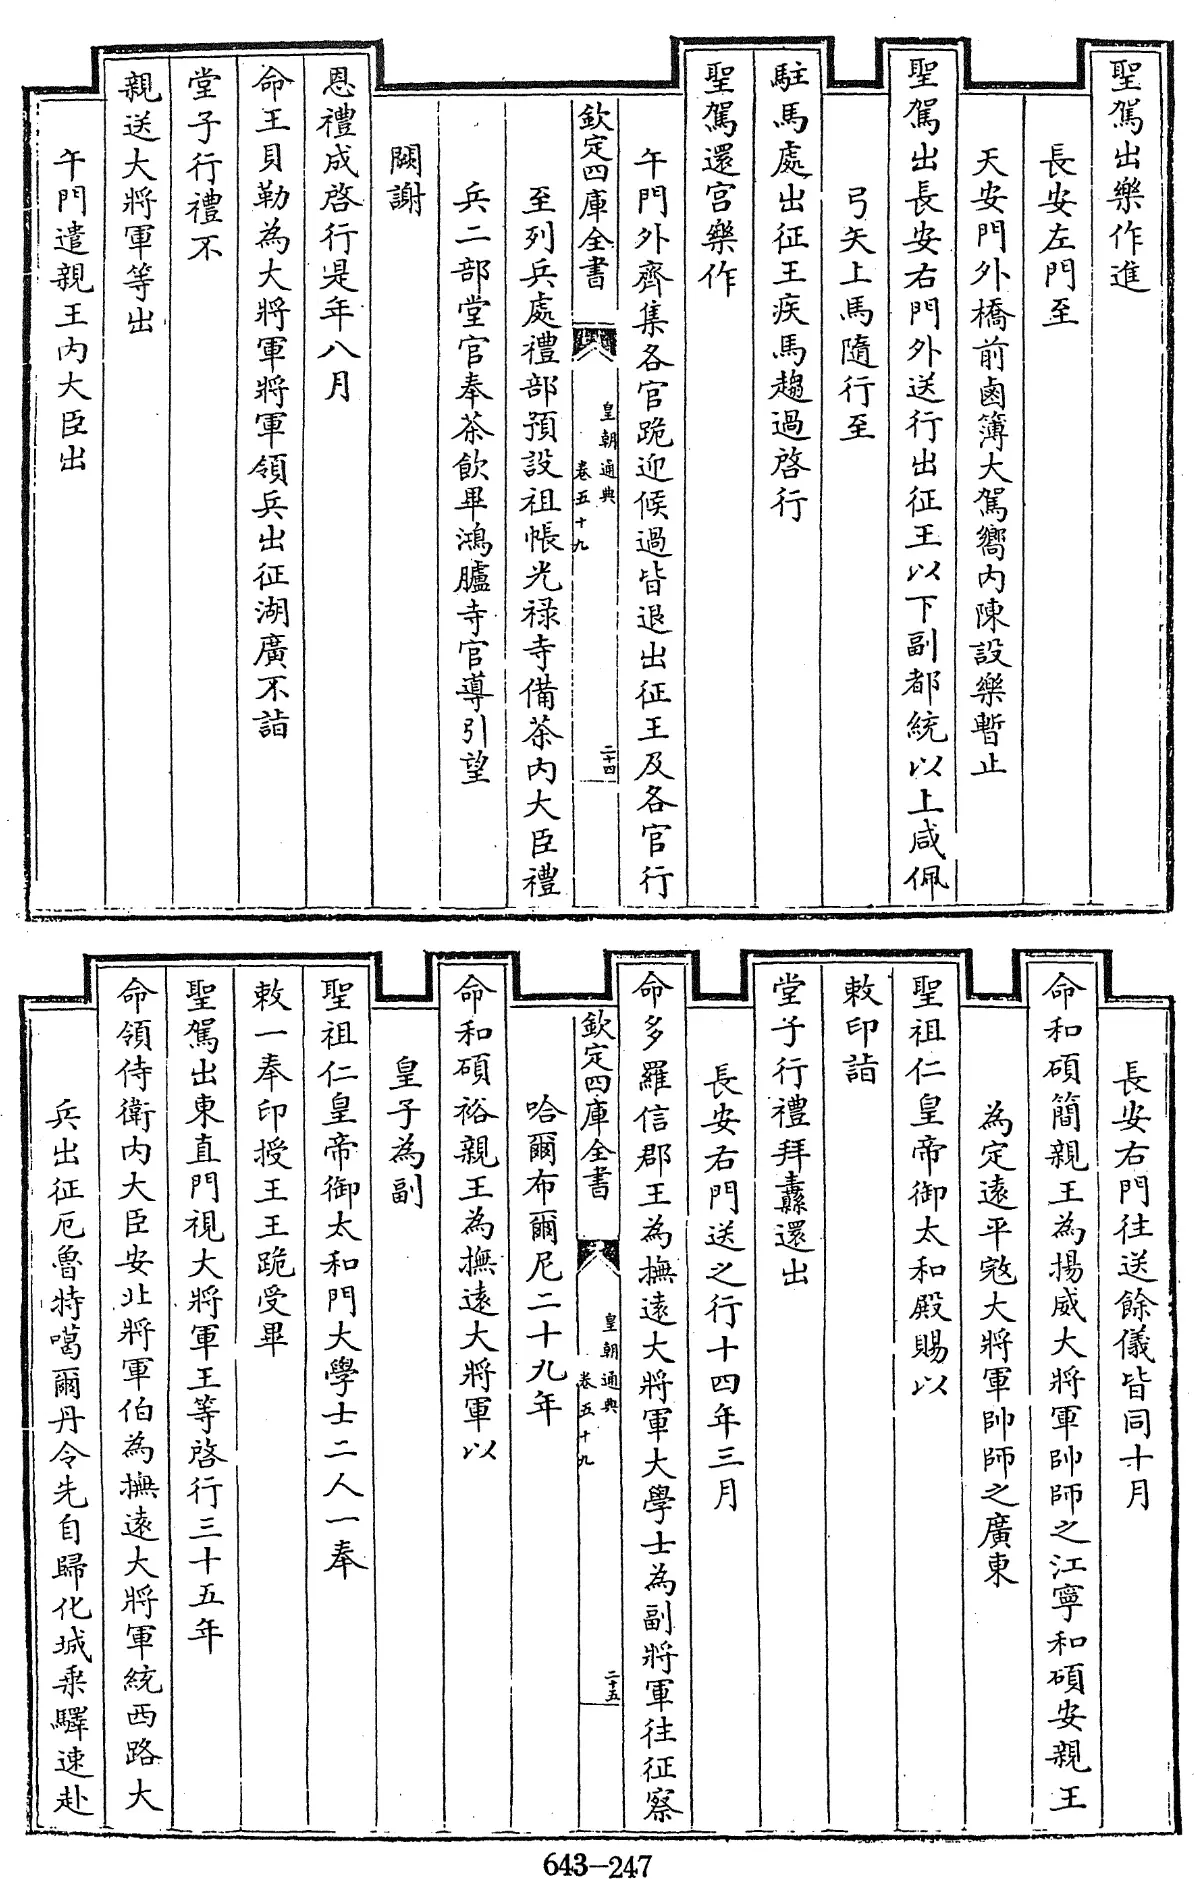 聖駕出樂作進
長安左門至
天安門外橋前鹵簿大駕嚮内陳設樂暫止
聖駕出長安右門外送行出征王以下副都統以上咸佩
弓矢上馬隨行至
駐馬處出征王疾馬趨過啓行
聖駕還宫樂作
午門外齊集各官跪迎候過皆退出征王及各官行
欽定四庫全書
皇朝通典
卷五十九
二十四
至列兵處禮部預設祖帳光禄寺備茶内大臣禮
兵二部堂官奉茶飲畢鴻臚寺官導引望
闕謝
恩禮成啓行是年八月
命王貝勒為大將軍將軍領兵出征湖廣不詣
堂子行禮不
親送大將軍等出
午門遣親王内大臣出
長安右門往送餘儀皆同十月
命和碩簡親王為揚威大將軍帥師之江寧和碩安親王
為定遠平寇大將軍帥師之廣東
聖祖仁皇帝御太和殿賜以
敕印詣
堂子行禮拜纛還出
長安右門送之行十四年三月
命多羅信郡王為撫遠大將軍大學士為副將軍往征察
欽定四庫全書
皇朝通典
卷五十九
二十五
哈爾布爾尼二十九年
命和碩裕親王為撫遠大將軍以
皇子為副
聖祖仁皇帝御太和門大學士二人一奉
敕一奉印授王王跪受畢
聖駕出東直門視大將軍王等啓行三十五年
命領侍衛内大臣安北將軍伯為撫遠大將軍統西路大
兵出征厄魯特噶爾丹令先自歸化城乘驛速赴
643-247